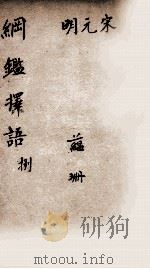 宋元明
綱鑑擇語 捌
研狗
mtoou.info